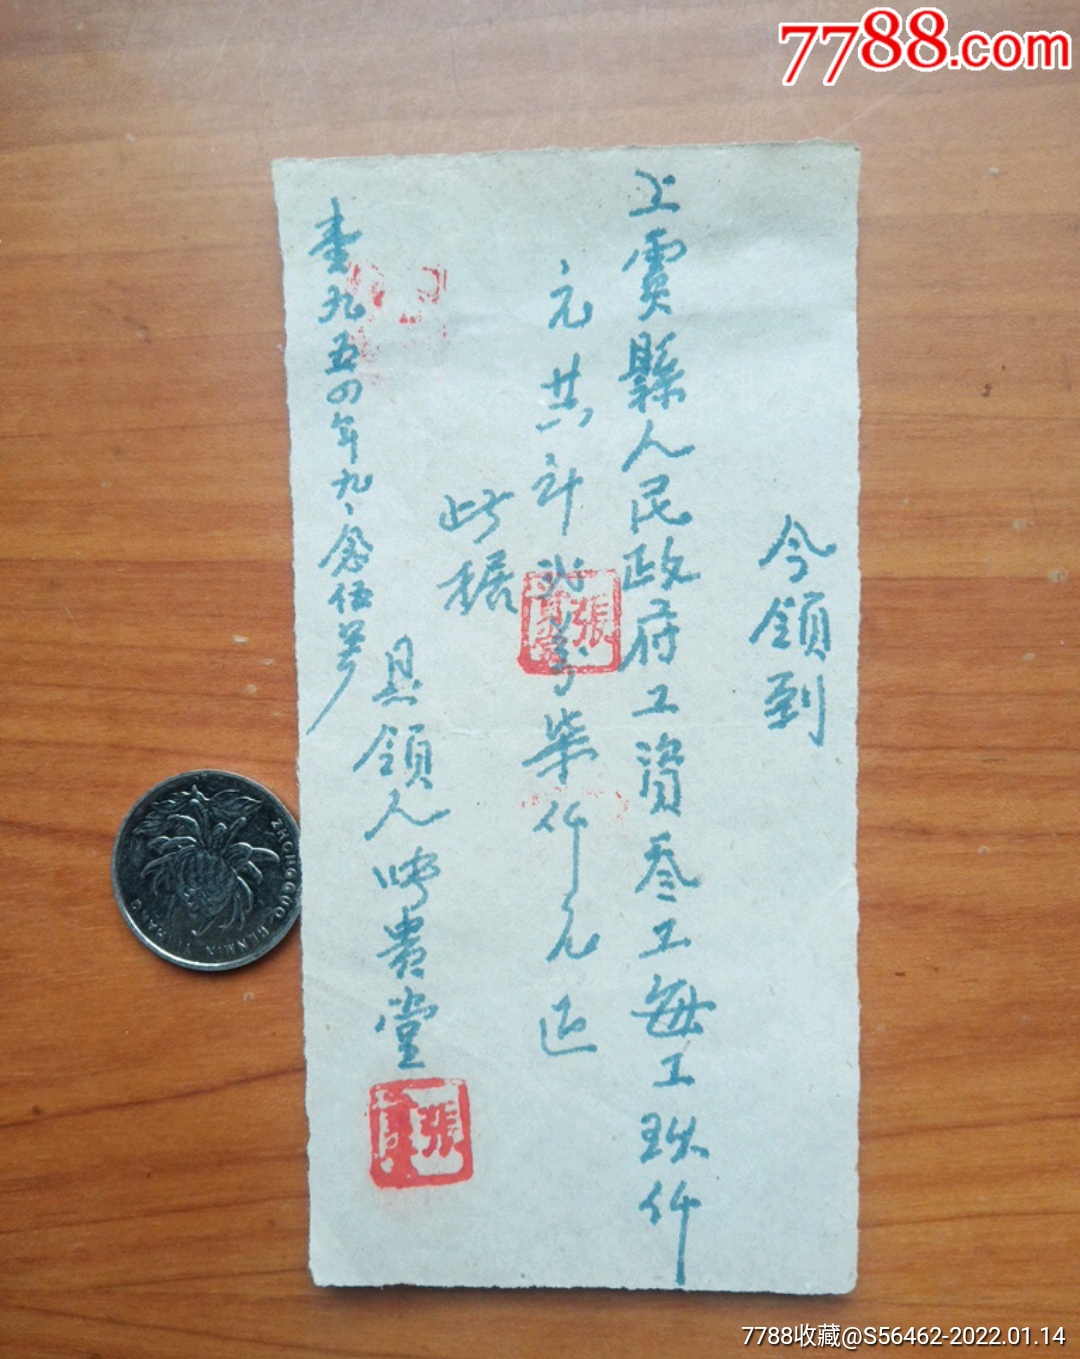 今領到
上虞縣人民政府工資叁工每工玖仟
元共計貳萬柒仟元正
此據
具領人張貴堂
壹九五四年九、念伍号
張
張
ZHONGGUO RENMIN YINHANG
7788.com
7788收藏@S56462-2022.01.14